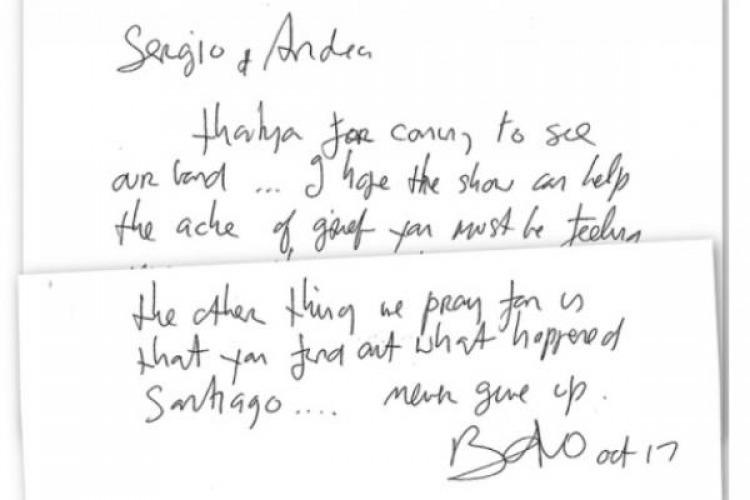 Sergio & Andrea
thankya for coming to see
our band ... I hope the show can help
the ache of grief you must be feeling
the other thing we pray for is
that you find out what happened
Santiago .... never give up.
BONO oct 17